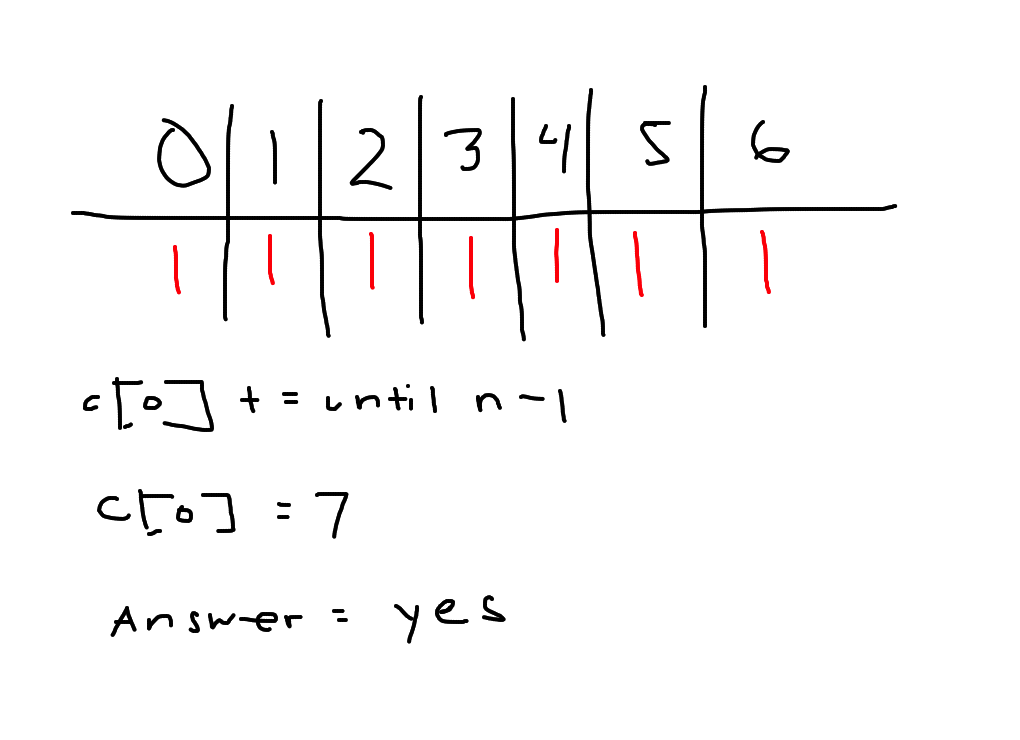 0 1 2 3 4 5 6
1 1 1 1 1 1 1
c[0] += until n-1
c[0] = 7
Answer = yes